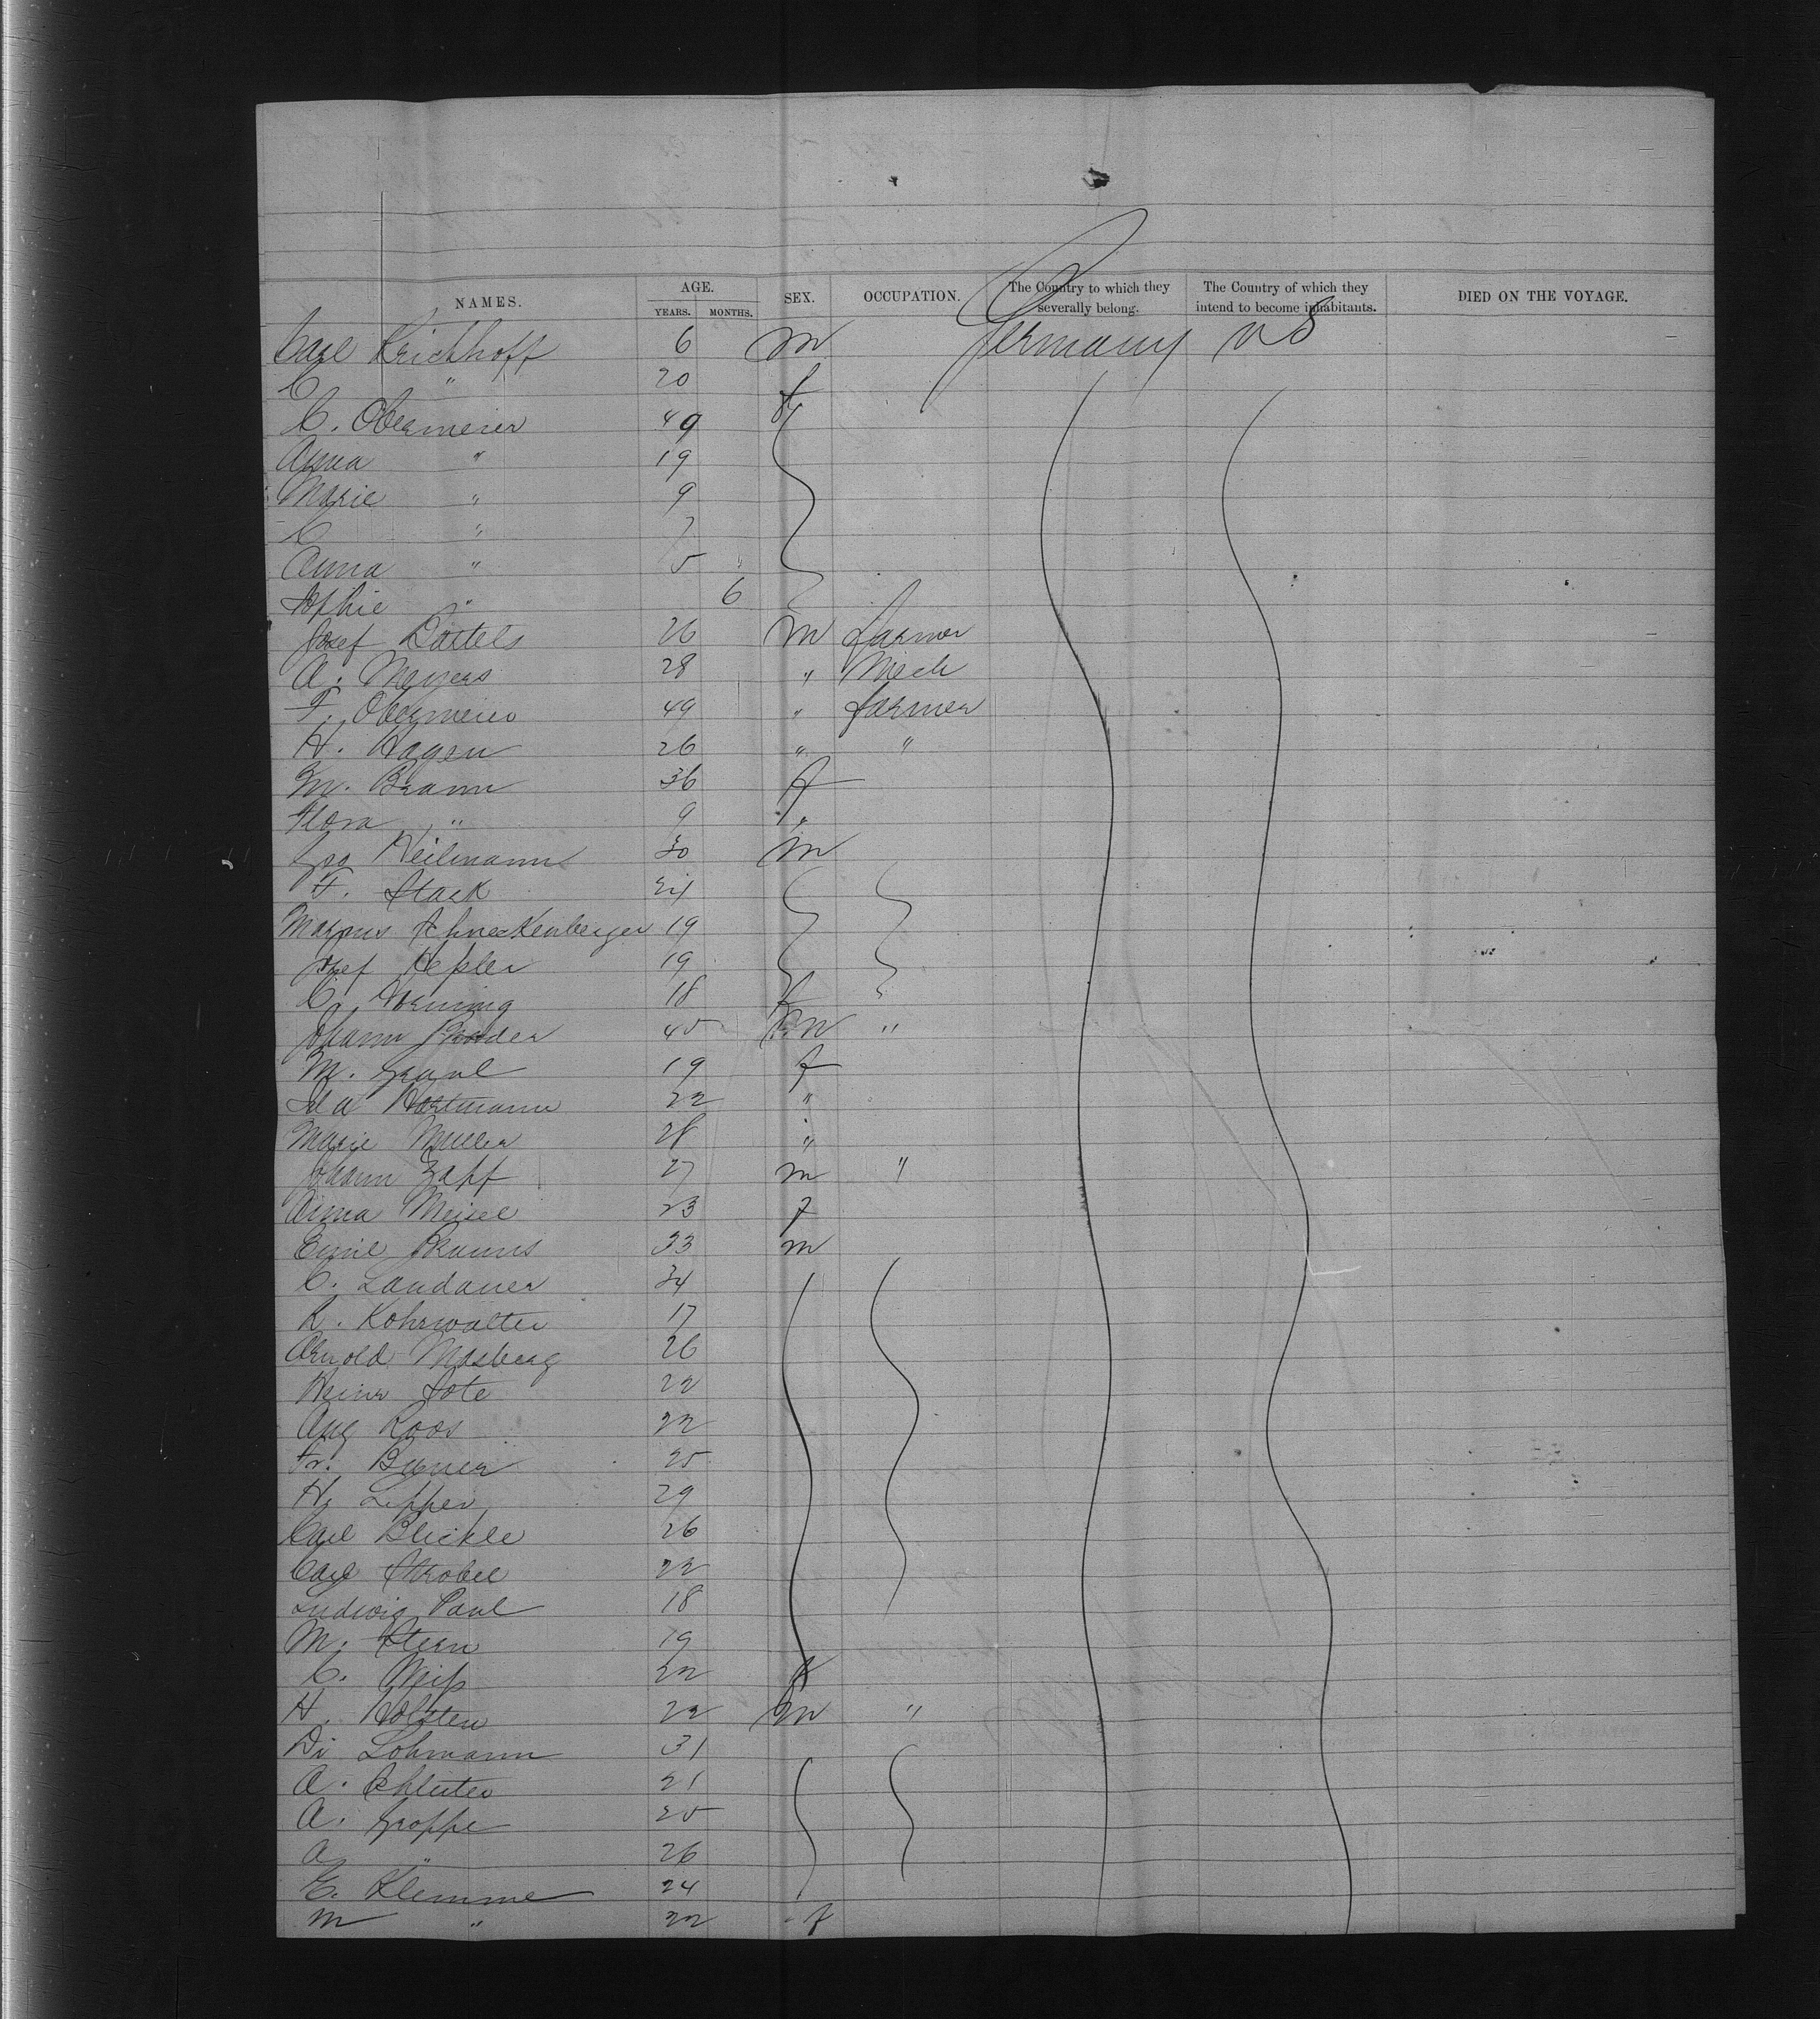 NAMES. AGE. YEARS. MONTHS. SEX. OCCUPATION. The Country to which they severally belong. The Country of which they intend to become inhabitants. DIED ON THE VOYAGE.
Carl Krichhoff 6 m Germany US
C " 20 f
C. Obermeier 49 f
Anna " 19
Marie " 9
C " 7
Anna " 5
Sophie " 6
Josef Bartels 26 m farmer
A. Meyers 28 " Mech
F. Obermeier 49 " farmer
H. Hagen 26 " "
M. Braun 36 f
Flora " 9 "
Geo Heilmann 30 m
F. Stark 24
Marpus Schneckenberger 19
Josef Hepler 19
C. Horning 18 f
Johann 45 m "
M. Graul 19 f
Ida Hortmann 22 "
Marie Muller 28 "
Johann Zapf 27 m "
Anna Meisel 23 f
Emil Brauns 33 m
C. Landauer 34
R. Kohrwalter 17
Arnold Mosberg 26
Heinr Sote 22
Aug Roos 22
Fr. 25
H. Lepper 29
Carl Blickle 26
Carl Strobel 22
Ludwig Paul 18
M. Stern 19
C. 22 f
H. Holsten 22 m "
Di Lohmann 31
A. Schluter 21
A. Groppe 25
A " 26
E. Klemme 24
M " 22 f